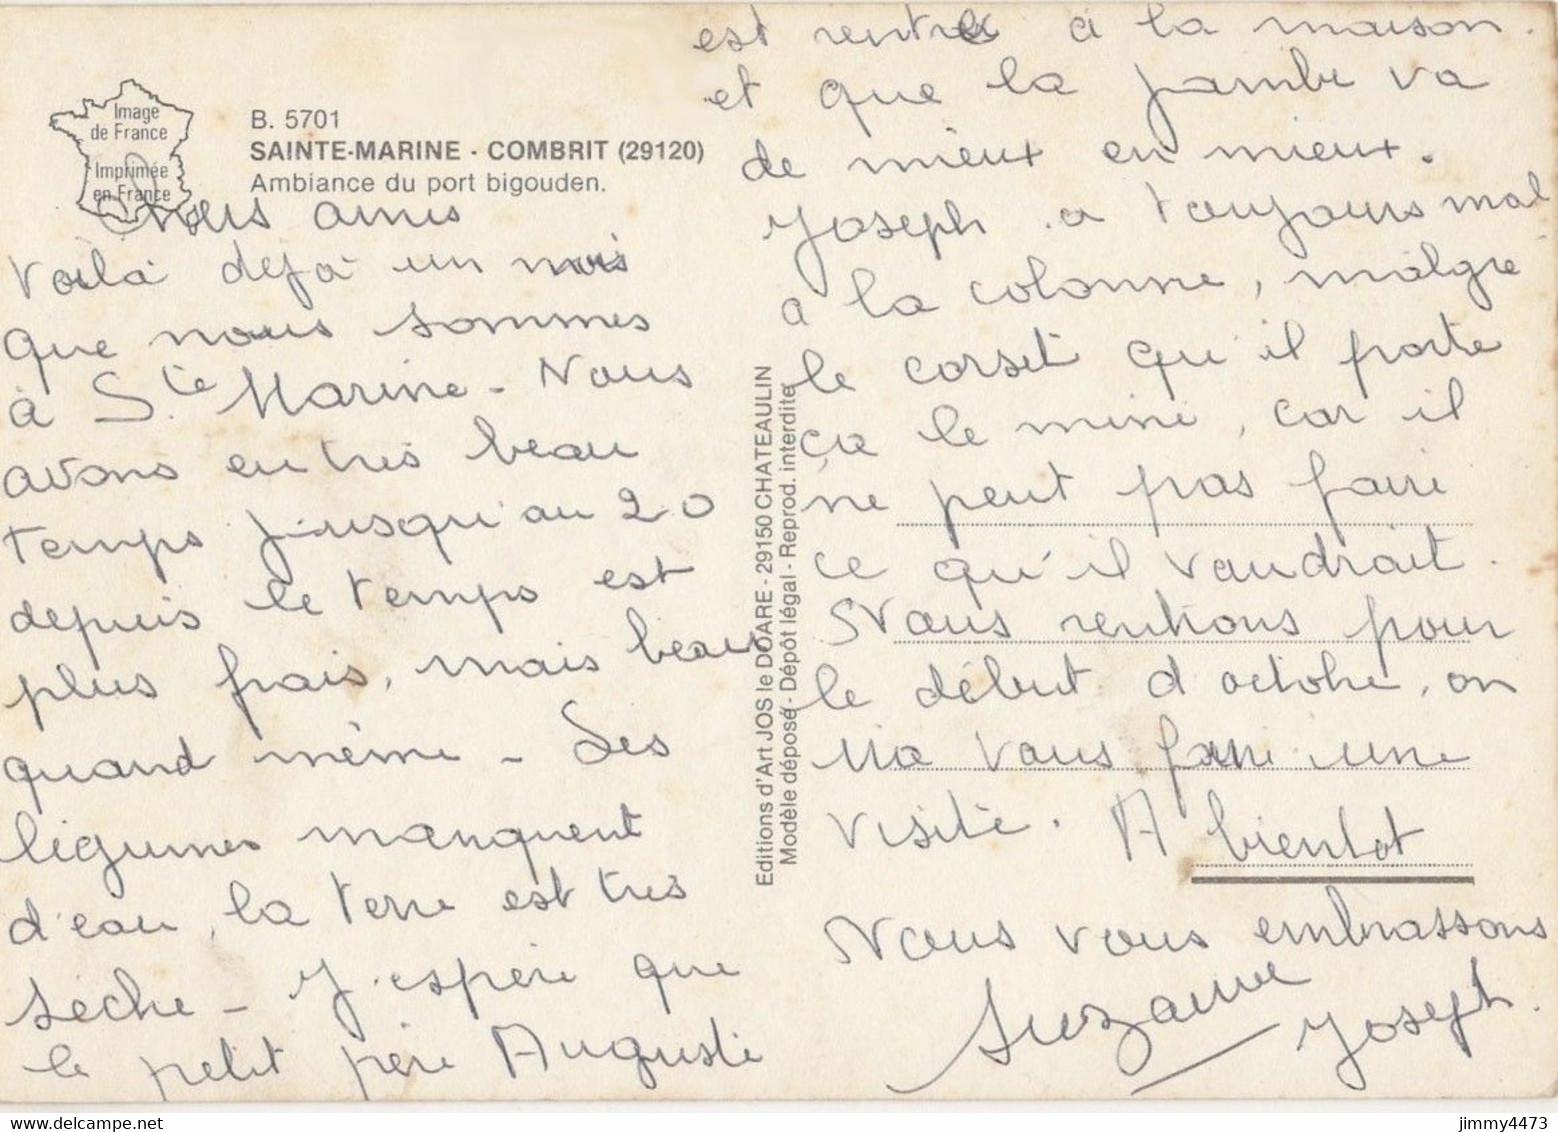 Image
de France
Imprimée
en France
B. 5701
SAINTE-MARINE - COMBRIT (29120)
Ambiance du port bigouden.
amis
Voilà déjà un mois
que nous sommes
à Ste Marine - Nous
avons eu très beau
temps jusqu'au 20
depuis le temps est
plus frais, mais beau
quand même - Les
légumes manquent
d'eau, la terre est très
sèche - J'espère que
le petit père Auguste
Editions d'Art JOS le DOARE - 29150 CHATEAULIN
Modèle déposé - Dépôt légal - Reprod. interdite
est rentré à la maison.
et que la jambe va
de mieux en mieux.
Joseph a toujours mal
a la colonne, malgré
le corset qu'il porte
ça le mine, car il
ne peut pas faire
ce qu'il vaudrait.
Nous rentrons pour
le début d'octobre, on
ira vous faire une
visite. A bientot
Nous vous embrassons
Suzanne Joseph.
jimmy4473